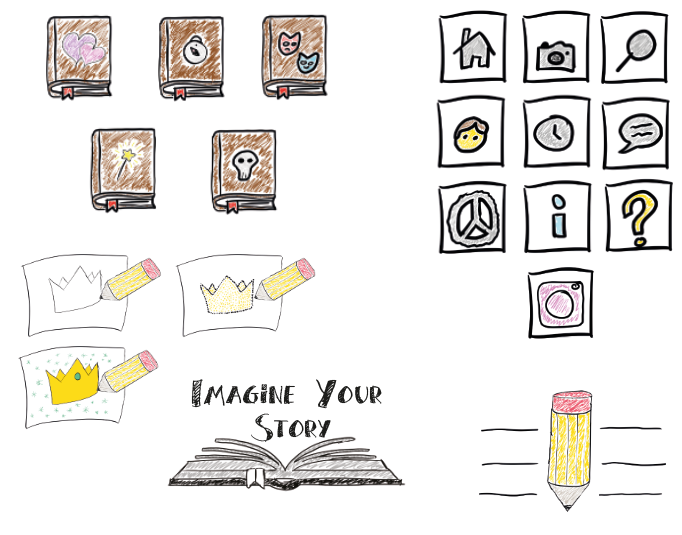 i
?
Imagine Your
Story